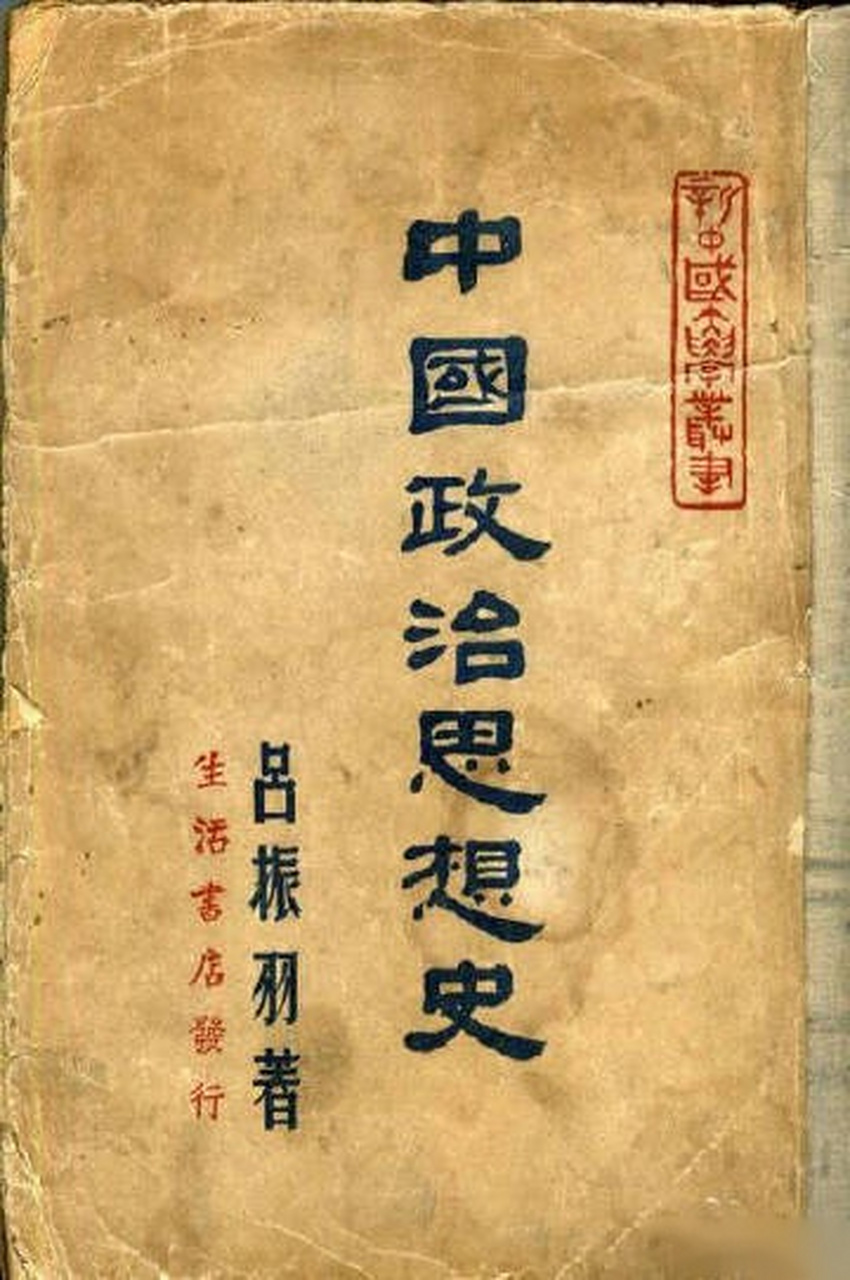 新中國大學叢書
中國政治思想史
呂振羽著
生活書店發行